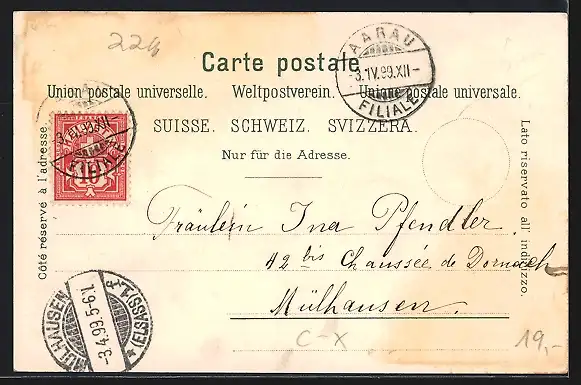 224
Carte postale
AARAU
-3.IV.99.XII-
FILIALE
Union postale universelle. Weltpostverein. Unione postale universale.
SUISSE. SCHWEIZ. SVIZZERA.
Nur für die Adresse.
FILIALE
10
Côté réservé à l'adresse.
Lato riservato all' indirizzo.
Fräulein Ina Pfendler
42 bis Chaussée de Dornach
Mülhausen.
MÜLHAUSEN
-3.4.99.5-6.
(ELSASS)
C-X
19,-